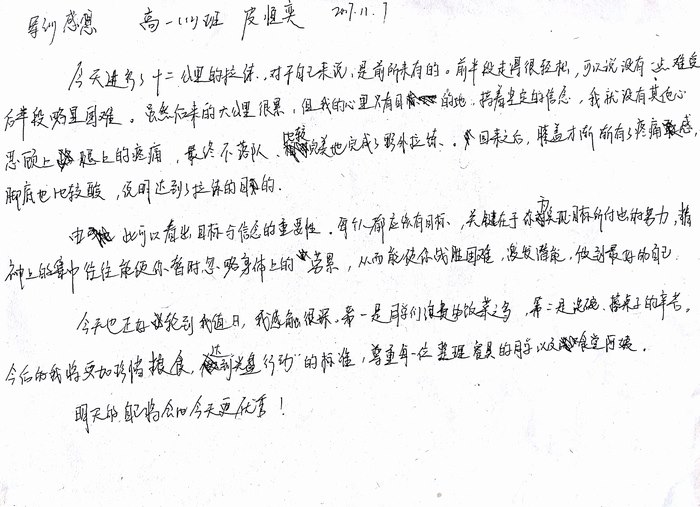 军训感恩 高一(1)班 皮恒奕 2017.11.7
今天进行了十二公里的拉练,对于自己来说,是前所未有的。前半段走得很轻松,可以说没有一点难度
后半段略显困难。虽然后来的六公里很累,但我的心里只有目的地,揣着坚定的信念,我就没有其他心
思顾上腿上的疼痛,最终不落队、比较完美地完成了野外拉练。回来之后,膝盖才渐渐有了疼痛感,
脚底也比较酸,说明达到了拉练的目的。
由此可以看出目标与信念的重要性。每个人都应该有目标,关键在于你为实现目标所付出的努力,精
神上的集中往往能使你暂时忽略身体上的苦累,从而能使你战胜困难,激发潜能,做到最好的自己。
今天也正好轮到我值日,我感触很深。第一是同学们浪费的饭菜之多,第二是洗碗、擦桌子的辛苦。
今后的我将更加珍惜粮食,达到“光盘行动”的标准,尊重每一位整理餐具的同学以及食堂阿姨。
明天的自己将会比今天更优秀!